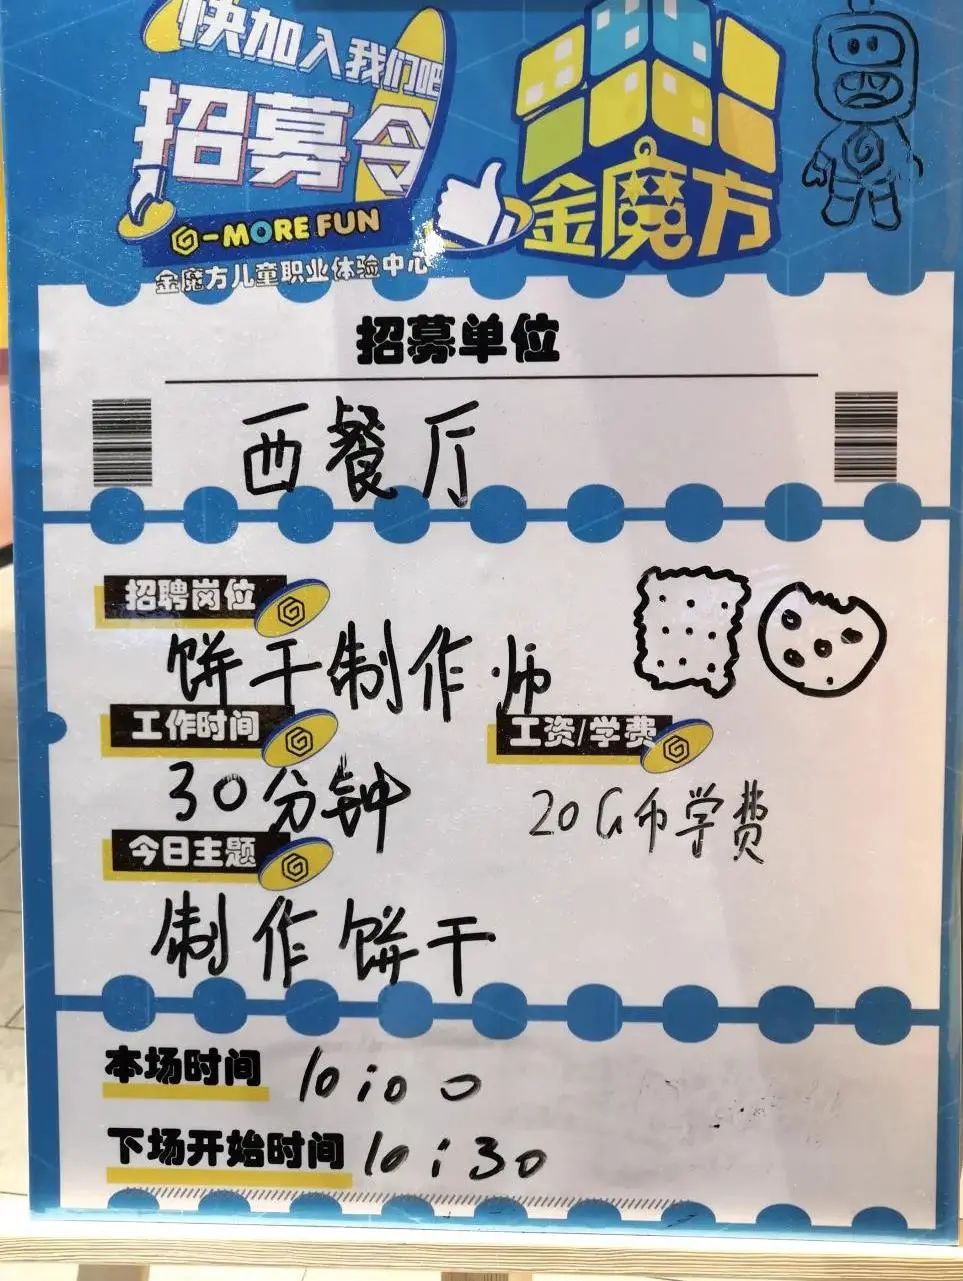 快加入我们吧
招募令
G-MORE FUN
金魔方儿童职业体验中心
金魔方
招募单位
西餐厅
招聘岗位
饼干制作师
工作时间
30分钟
工资/学费
20G币学费
今日主题
制作饼干
本场时间 10:00
下场开始时间 10:30